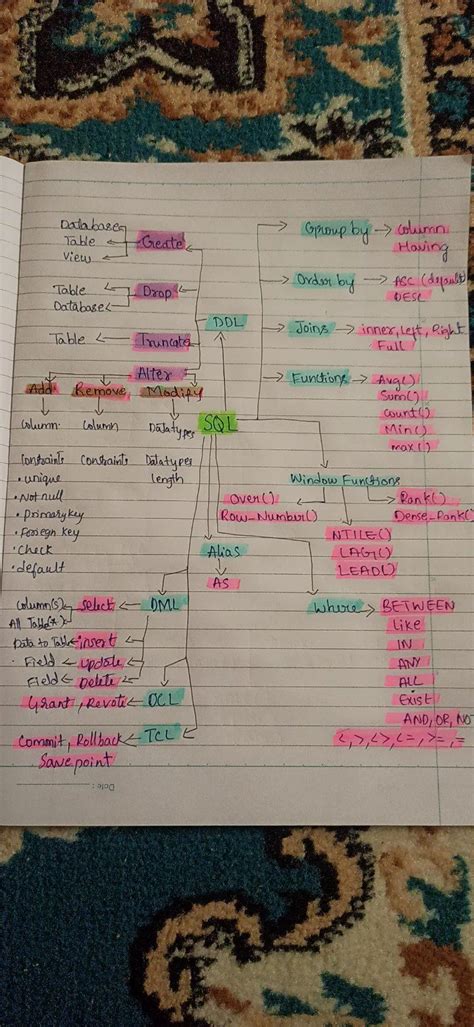 Database
Table
View
Create
Table
Database
Drop
Table
Truncate
DDL
Alter
Add
Remove
Modify
Column
Column
Datatypes
Constraints
Constraints
Datatypes
length
• unique
• Not null
• primary key
• Foreign key
• Check
• default
SQL
Group by
Column
Having
Order by
ASC (default)
DESC
Joins
inner, Left, Right
Full
Functions
Avg()
Sum()
Count()
Min()
max()
Window Functions
Over()
Row-Number()
Rank()
Dense-Rank()
NTILE()
LAG()
LEAD()
Alias
AS
Where
BETWEEN
Like
IN
ANY
ALL
Exist
AND, OR, NOT
<, >, <>, <=, >=, =
DML
Select
Column(s)
All Table(*)
insert
Data to Table
update
Field
Delete
Field
DCL
Grant, Revote
TCL
Commit, Rollback
Savepoint
Date :